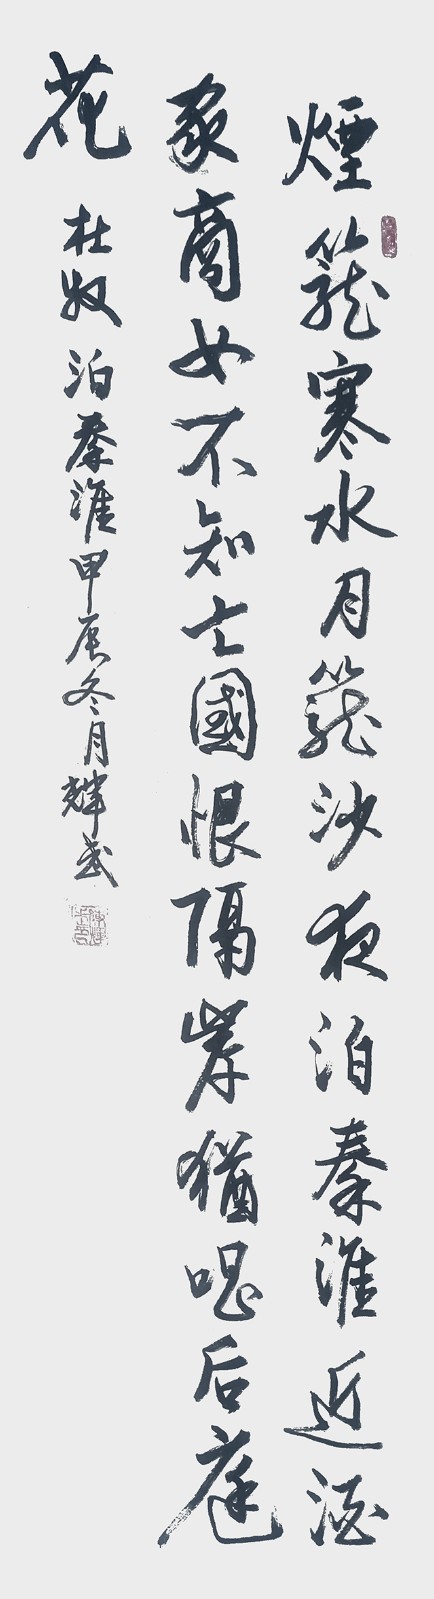 煙籠寒水月籠沙夜泊秦淮近酒
家商女不知亡國恨隔岸猶唱后庭
花
杜牧泊秦淮甲辰冬月輝武